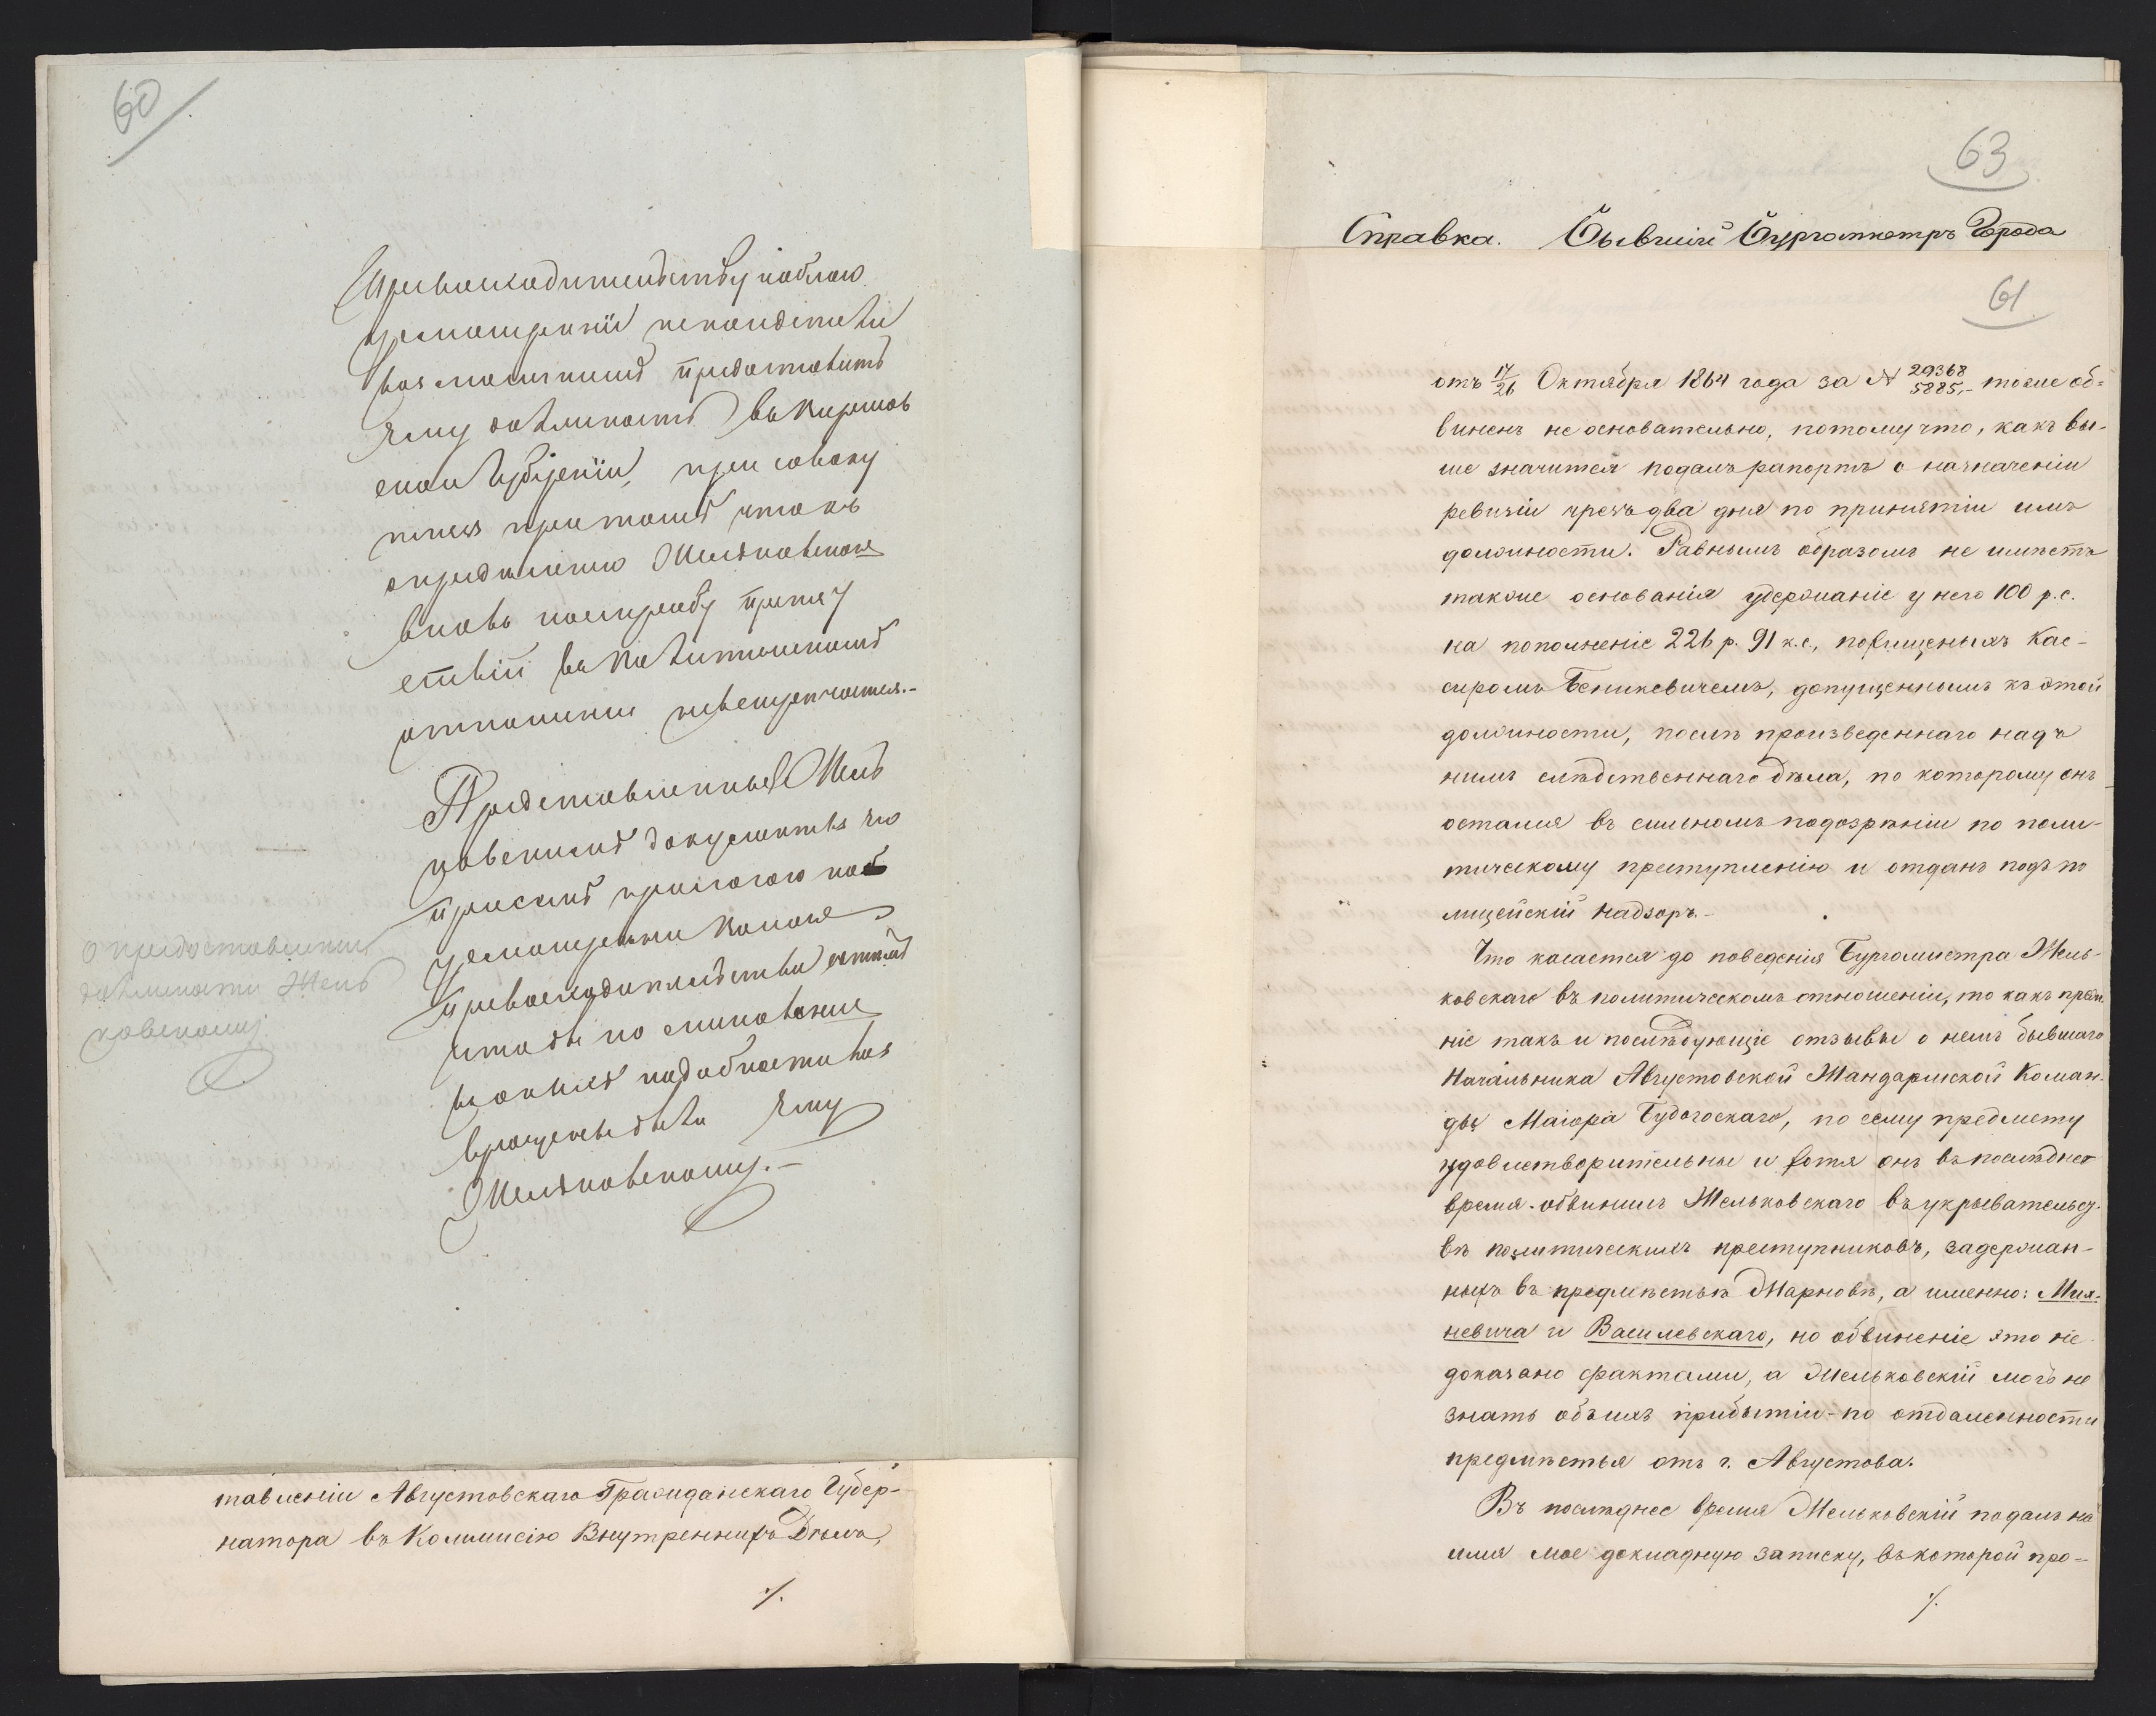 60
Превосходительству на благо
усмотрѣніе не найдете ли
возможнымъ предоставить
ему должность въ
Губерніи, при
чемъ при томъ что къ
опредѣленію Желковскаго
вновь
въ политическомъ
отношеніи не встрѣчается.-
Представленные Жель
ковскимъ документы
при семъ прилагаю на
усмотрѣніи Вашего
Превосходительства
что бы по минованіи
въ нихъ надобности воз
вращены были ему
Желковскому.-
о предоставленіи
должности Жель
ковскому.
тавленіи Августовскаго Гражданскаго Губер-
натора въ Коммисію Внутреннихъ Дѣлъ,
·/.
63
Справка. Бывшій Бургомистръ Города
61
отъ 17/26 Октября 1864 года за № 29368/5885,- тоже об-
виненъ не основательно, потому что, какъ вы-
ше значится подалъ рапортъ о назначеніи
ревизіи чрезъ два дня по принятіи имъ
должности. Равнымъ образомъ не имѣетъ
также основанія удержаніе у него 100 р. с.
на пополненіе 226 р. 91 к. с., похищеныхъ Кас-
сиромъ Беникевичемъ, допущеннымъ къ этой
должности, послѣ произведеннаго надъ
нимъ слѣдственнаго дѣла, по которому онъ
остался въ сильномъ подозрѣніи по поли-
тическому преступленію и отданъ подъ по
лицейскій надзоръ.-
Что касается до поведенія Бургомистра Жель-
ковскаго въ политическомъ отношеніи, то какъ преж
ніе такъ и послѣдующіе отзывы о немъ бывшаго
Начальника Августовской Жандармской Коман-
ды Маіора Будогоскаго, по сему предмету
удовлетворительны и хотя онъ въ послѣднее
время обвинилъ Желковскаго въ укрывательст-
вѣ политическихъ преступниковъ, задержан-
ныхъ въ предмѣстьѣ Жарновѣ, а именно: Мил-
невича и Василевскаго, но обвиненіе это не
доказано фактами, а Желковскій могъ не
знать объ ихъ прибытіи-по отдаленности
предмѣстья отъ г. Августова.
Въ послѣднее время Желковскій подалъ на
имя мое докладную записку, въ которой про-
·/.